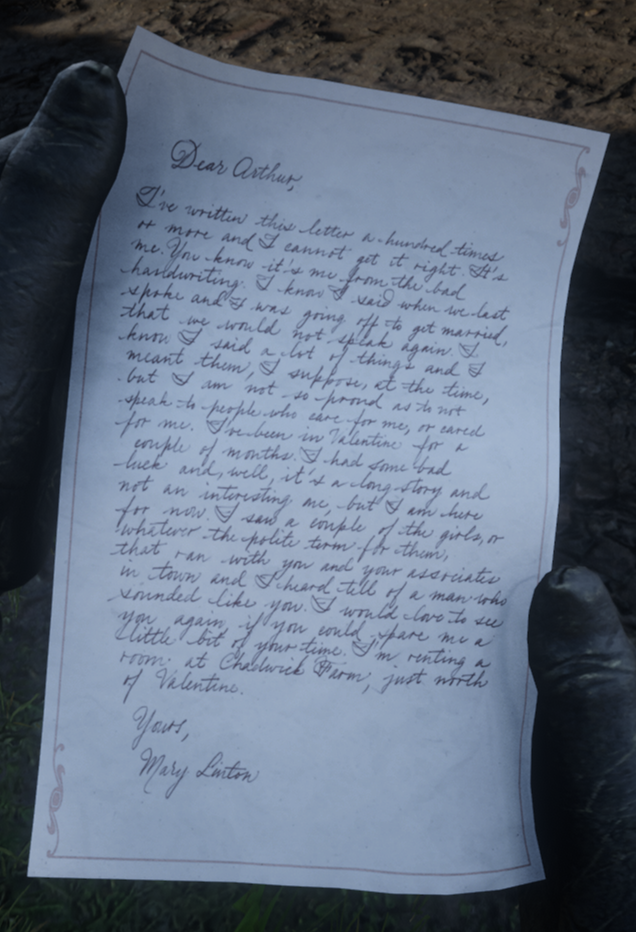 Dear Arthur,
I've written this letter a hundred times
or more and I cannot get it right. It's
me. You know it's me from the bad
handwriting. I know I said when we last
spoke and I was going off to get married,
that we would not speak again. I
know I said a lot of things and I
meant them, I suppose, at the time,
but I am not so proud as to not
speak to people who care for me, or cared
for me. I've been in Valentine for a
couple of months. I had some bad
luck and, well, it's a long story and
not an interesting one, but I am here
for now. I saw a couple of the girls, or
whatever the polite term for them,
that ran with you and your associates
in town and I heard tell of a man who
sounded like you. I would love to see
you again, if you could spare me a
little bit of your time. I'm renting a
room at Chadwick Farm, just north
of Valentine.
Yours,
Mary Linton